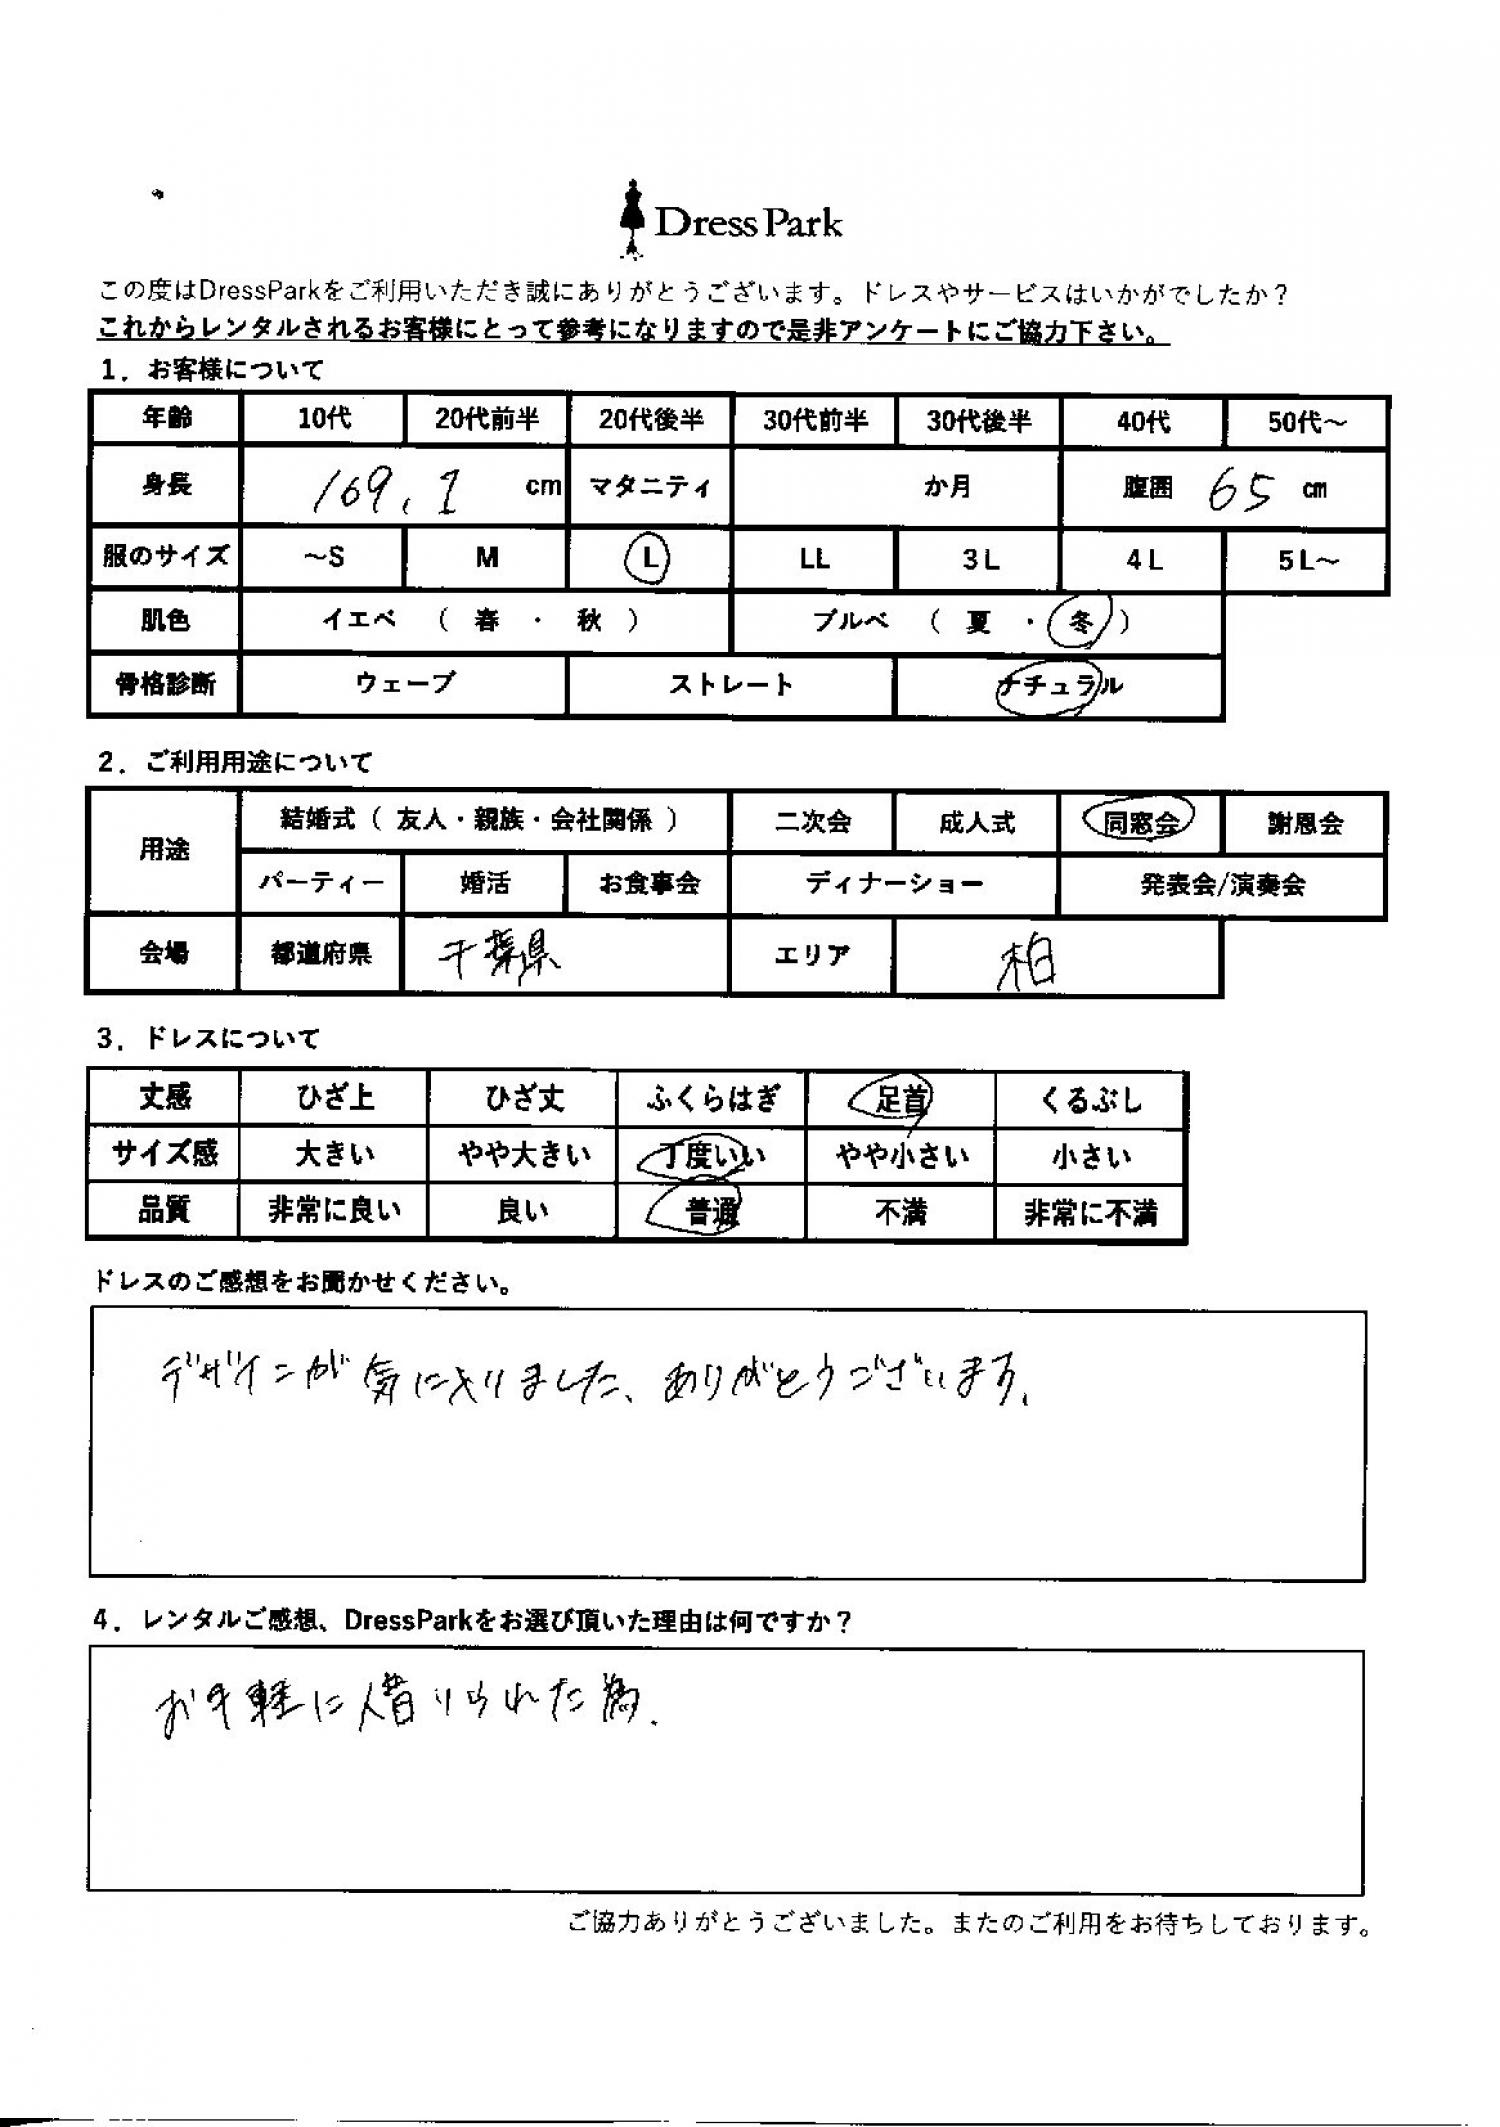 Dress Park
この度はDressParkをご利用いただき誠にありがとうございます。ドレスやサービスはいかがでしたか？
これからレンタルされるお客様にとって参考になりますので是非アンケートにご協力下さい。
1．お客様について
年齢 10代 20代前半 20代後半 30代前半 30代後半 40代 50代～
身長 169.1 cm マタニティ か月 腹囲 65 cm
服のサイズ ～S M L LL 3L 4L 5L～
肌色 イエベ （ 春 ・ 秋 ） ブルベ （ 夏 ・ 冬 ）
骨格診断 ウェーブ ストレート ナチュラル
2．ご利用用途について
用途 結婚式（ 友人・親族・会社関係 ） 二次会 成人式 同窓会 謝恩会
パーティー 婚活 お食事会 ディナーショー 発表会/演奏会
会場 都道府県 千葉県 エリア 柏
3．ドレスについて
丈感 ひざ上 ひざ丈 ふくらはぎ 足首 くるぶし
サイズ感 大きい やや大きい 丁度いい やや小さい 小さい
品質 非常に良い 良い 普通 不満 非常に不満
ドレスのご感想をお聞かせください。
デザインが気に入りました、ありがとうございます、
4．レンタルご感想、DressParkをお選び頂いた理由は何ですか？
お手軽に借りられた為.
ご協力ありがとうございました。またのご利用をお待ちしております。